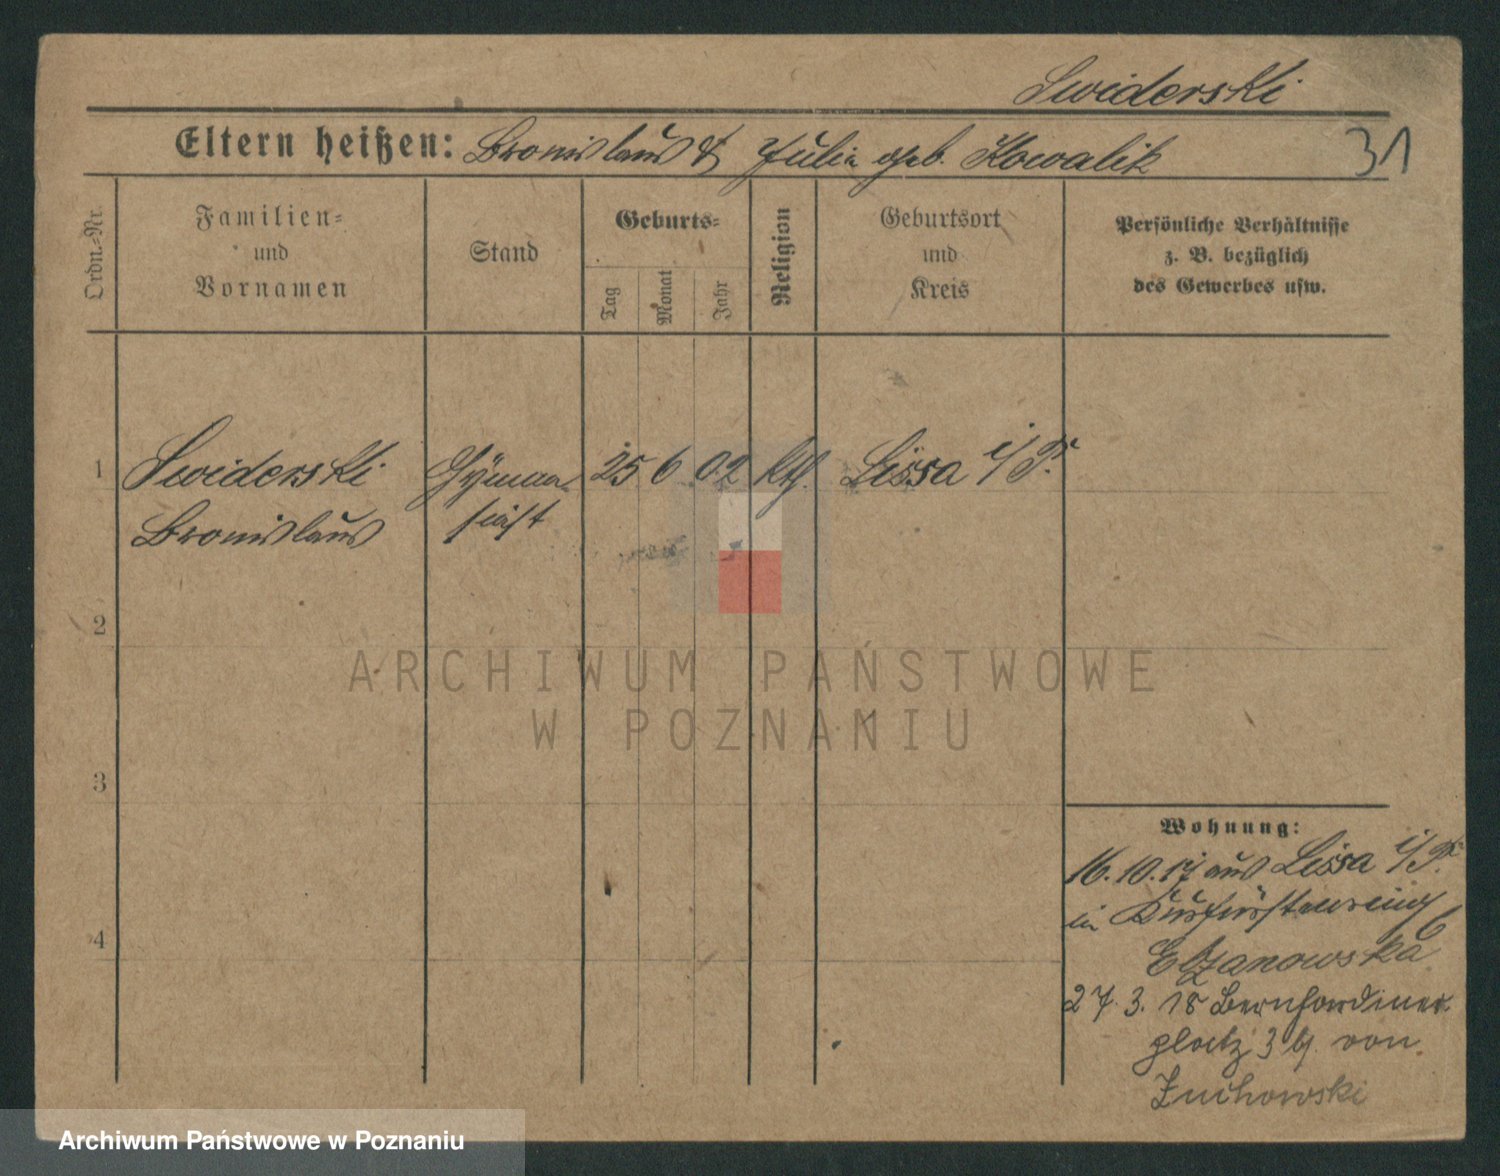 Swiderski
Eltern heißen: Bronislaus & Julia geb. Kowalik
31
Ordn.=Nr.
Familien=
und
Vornamen
Stand
Geburts=
Tag
Monat
Jahr
Religion
Geburtsort
und
Kreis
Persönliche Verhältnisse
z. B. bezüglich
des Gewerbes usw.
1 Swiderski Gymna 25 6 02 kth. Lissa i/P.
Bronislaus siast
2
3
4
Wohnung:
16.10.17 aus Lissa i/P.
in Kurfürstenring 6
Elzanowska
27.3.18 Bernhardiner
platz 3 bei von
Zuchowski
ARCHIWUM PAŃSTWOWE
W POZNANIU
Archiwum Państwowe w Poznaniu